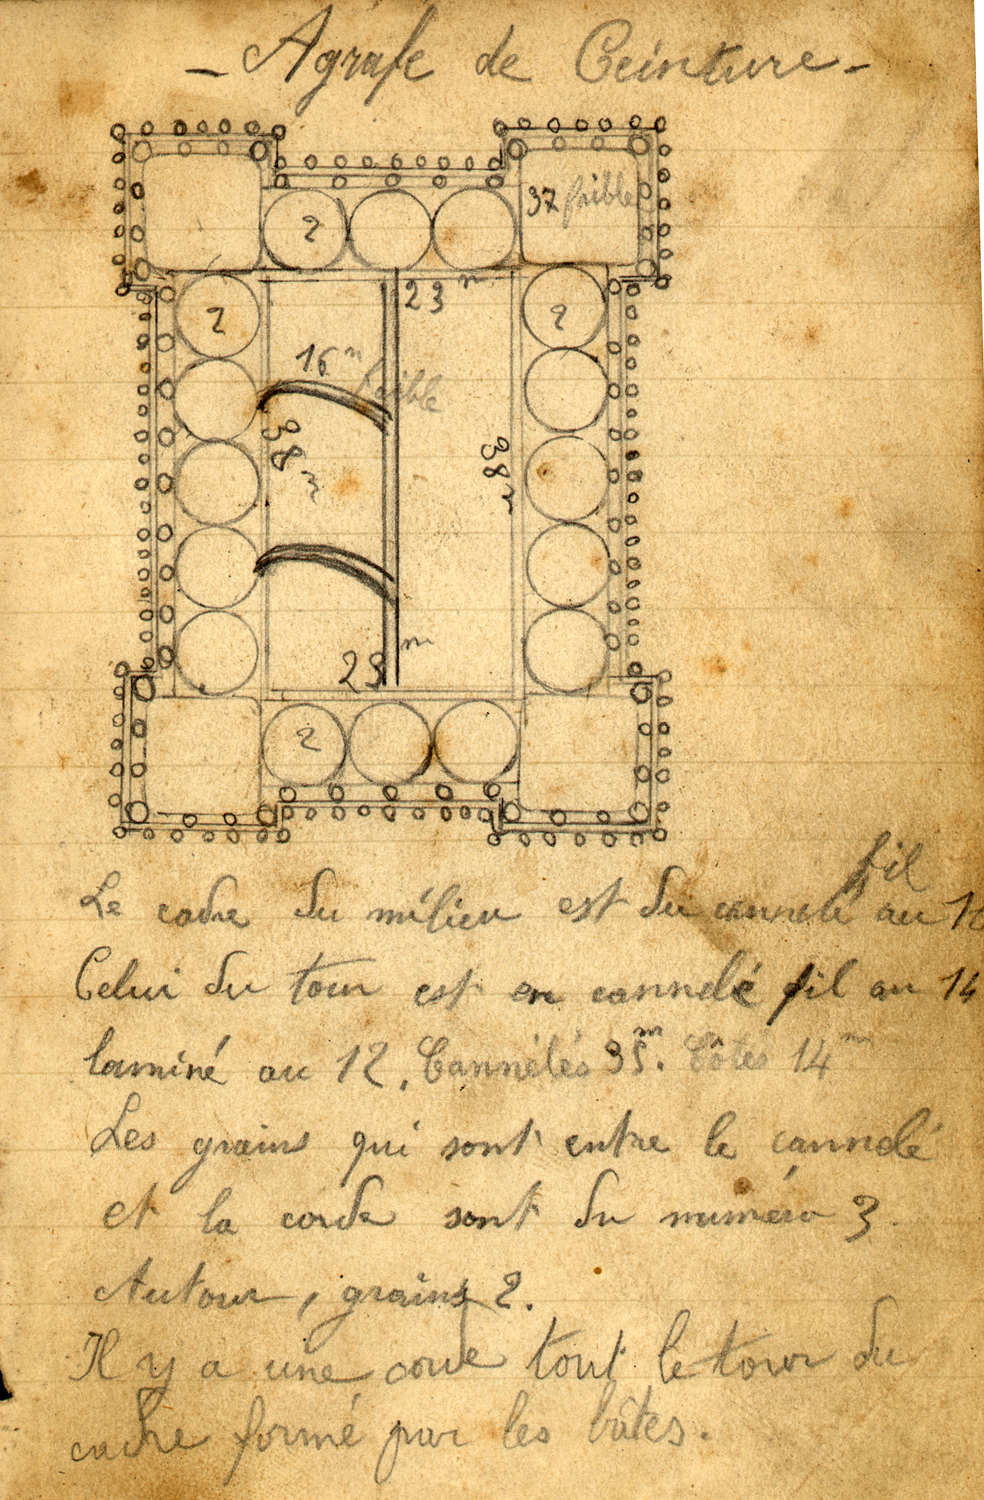 - Agrafe de Ceinture -
37 faible
2
23 m
2
2
16 m faible
38 m
38 m
23 m
2
fil
Le cadre du milieu est du cannelé au
Celui du tour est en cannelé fil au 14
laminé au 12. Cannelés 35 m. Côtés 14 m
Les grains qui sont entre le cannelé
et la corde sont du numéro 3.
Autour, grains 2.
Il y a une corde tout le tour du
cadre formé par les bâtes.